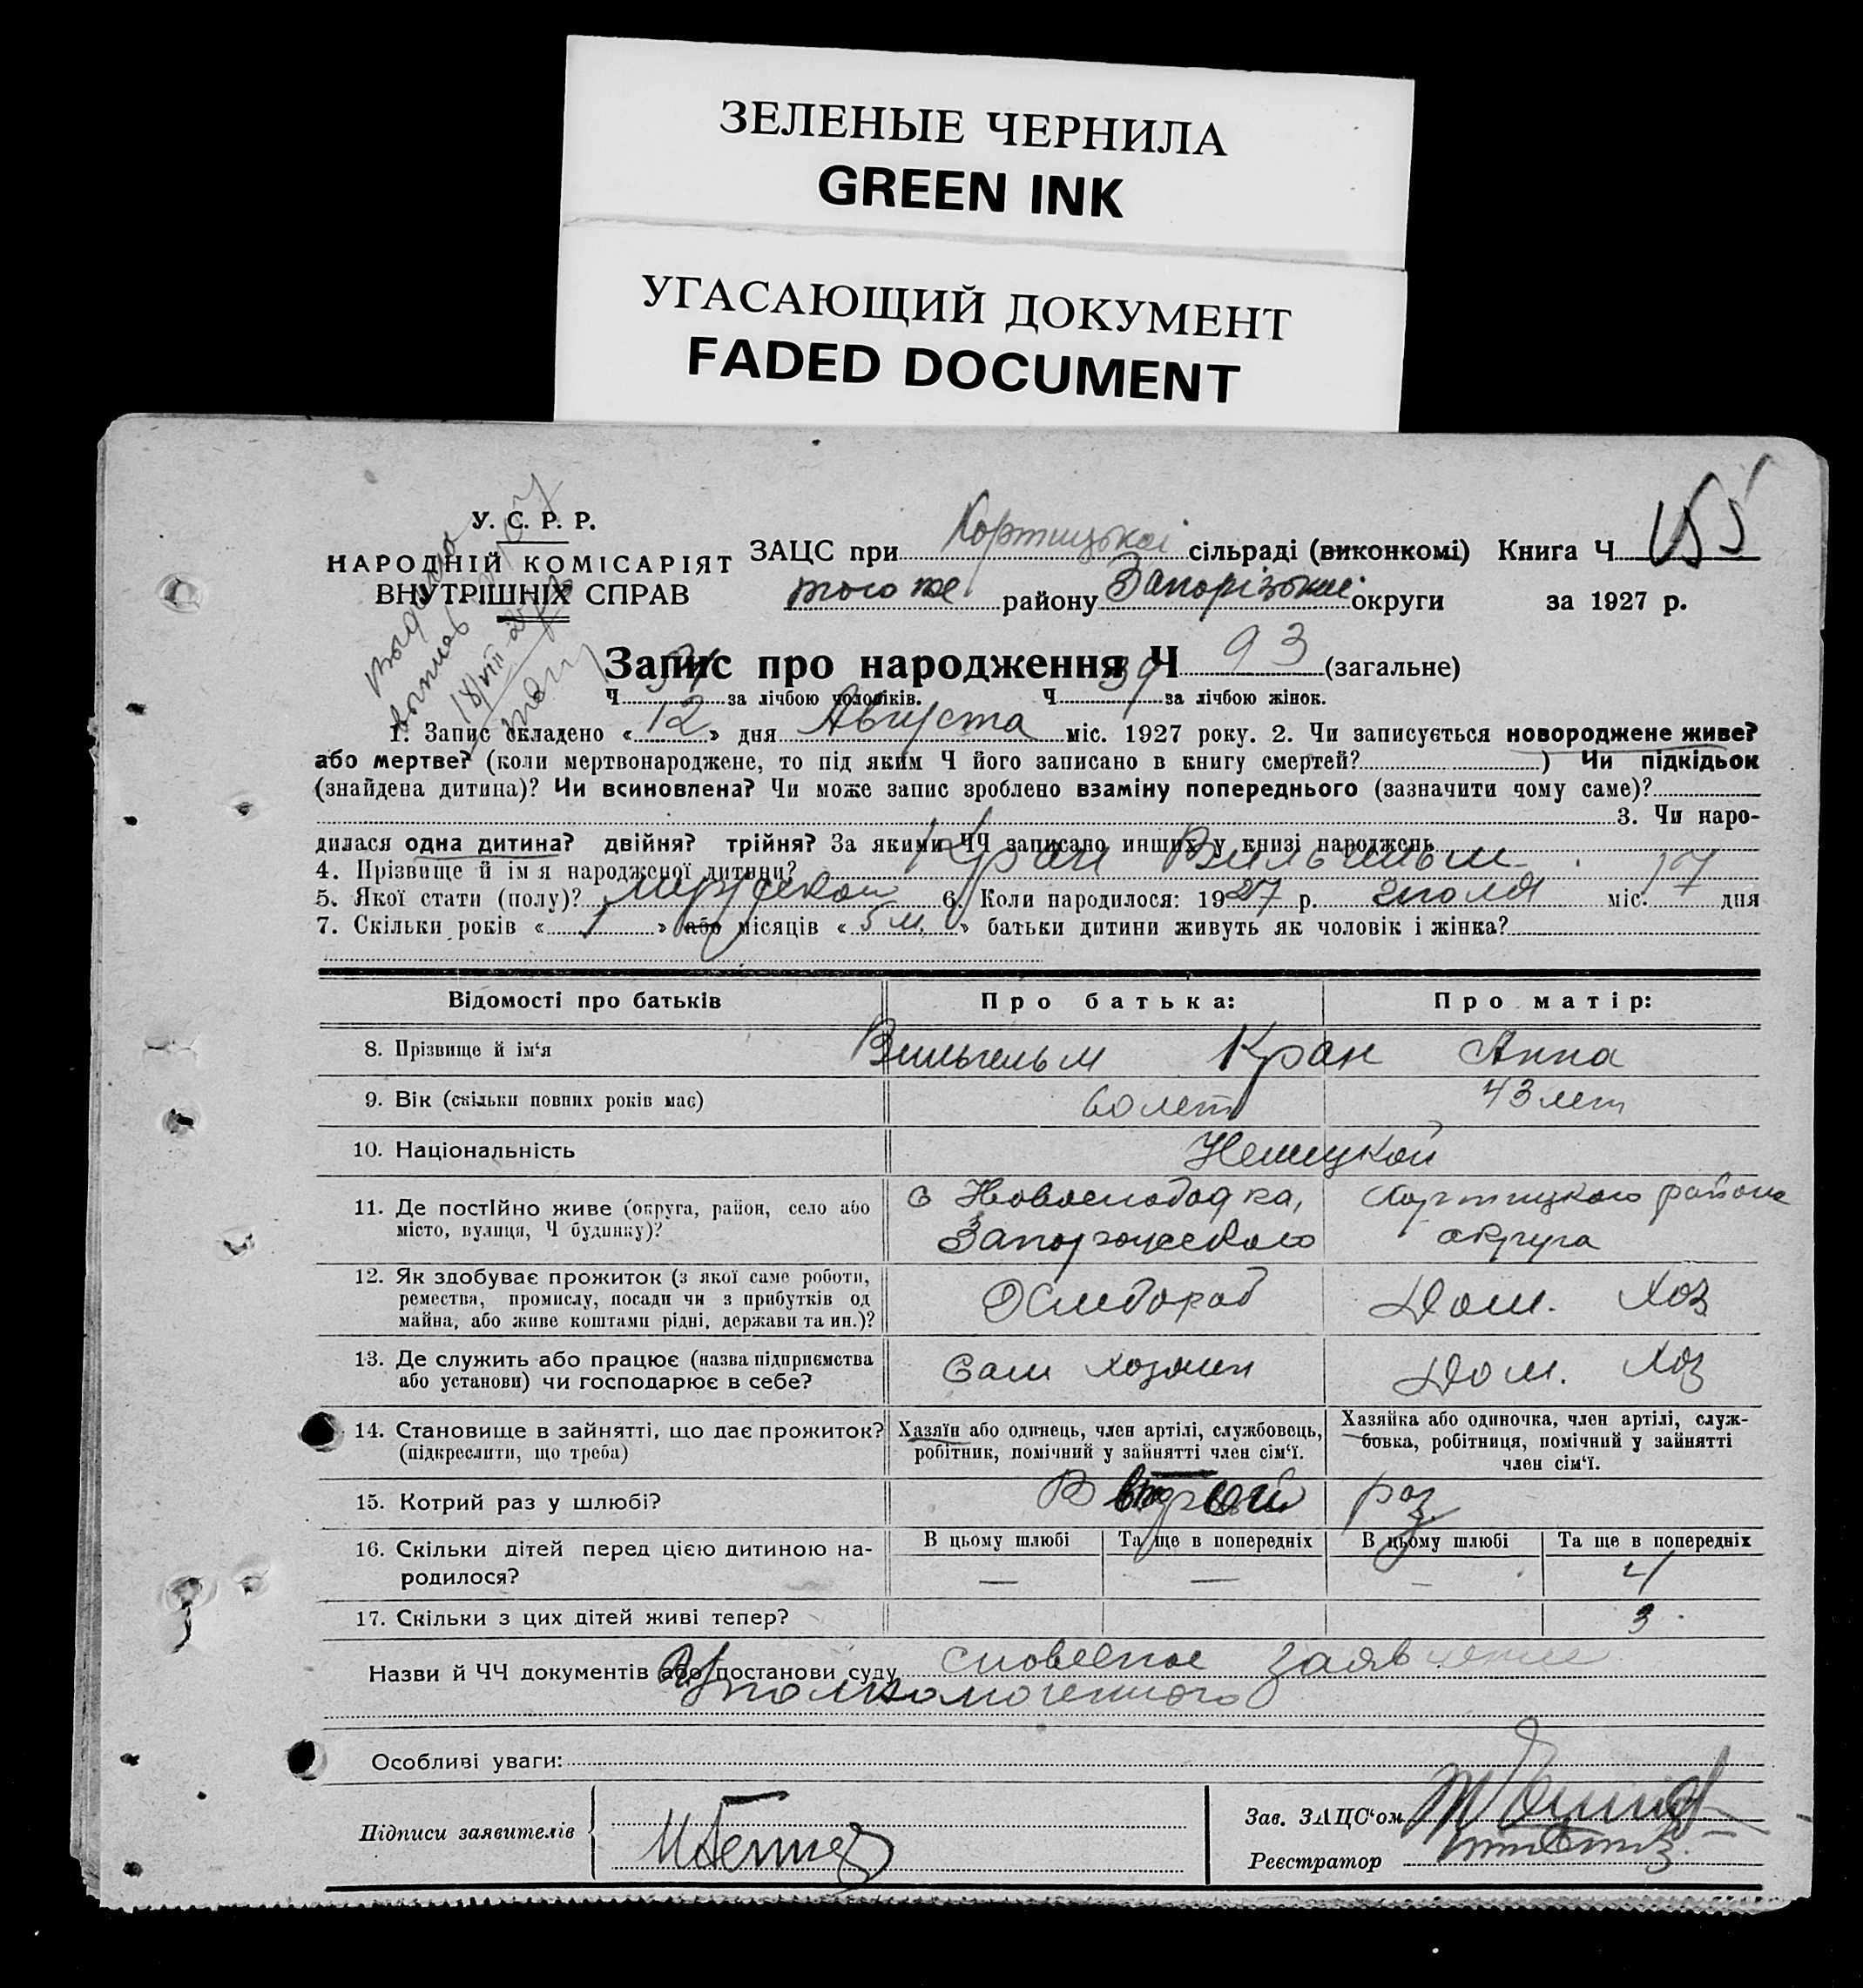 ЗЕЛЕНЫЕ ЧЕРНИЛА
GREEN INK
УГАСАЮЩИЙ ДОКУМЕНТ
FADED DOCUMENT
У. С. Р. Р.
НАРОДНІЙ КОМІСАРІЯТ
ВНУТРІШНІХ СПРАВ
ЗАЦС при Хортицькій сільраді (виконкомі) Книга Ч
того же району Запорізької округи за 1927 р.
Запис про народження Ч 93 (загальне)
Ч 54 за лічбою чоловіків. Ч 39 за лічбою жінок.
1. Запис складено « 12 » дня Августа міс. 1927 року. 2. Чи записується новороджене живе?
або мертве? (коли мертвонароджене, то під яким Ч його записано в книгу смертей? ) Чи підкідьок
(знайдена дитина)? Чи всиновлена? Чи може запис зроблено взаміну попереднього (зазначити чому саме)?
3. Чи наро-
дилася одна дитина? двійня? трійня? За якими ЧЧ записано инших у книзі народжень
4. Прізвище й ім'я народженої дитини? Кран Вильгельм
5. Якої стати (полу)? мужской 6. Коли народилося: 1927 р. июля міс. 17 дня
7. Скільки років « 1 » або місяців « 5 м. » батьки дитини живуть як чоловік і жінка?
Відомості про батьків Про батька: Про матір:
8. Прізвище й ім'я Вильгельм Кран Анна
9. Вік (скільки повних років має) 60 лет 43 лет
10. Національність Немецкой
11. Де постійно живе (округа, район, село або С Новослободка, Хортицкого района
місто, вулиця, Ч будинку)? Запорожского округа
12. Як здобуває прожиток (з якої саме роботи,
ремества, промислу, посади чи з прибутків од Хлебороб Дом. Хоз
майна, або живе коштами рідні, держави та ин.)?
13. Де служить або працює (назва підприємства Сам хозяин Дом. Хоз
або установи) чи господарює в себе?
14. Становище в зайнятті, що дає прожиток? Хазяїн або одинець, член артілі, службовець, Хазяйка або одиночка, член артілі, служ-
(підкреслити, що треба) робітник, помічний у зайнятті член сім'ї. бовка, робітниця, помічний у зайнятті
член сім'ї.
15. Котрий раз у шлюбі? В второй раз
16. Скільки дітей перед цією дитиною на- В цьому шлюбі Та ще в попередніх В цьому шлюбі Та ще в попередніх
родилося? — — — 4
17. Скільки з цих дітей живі тепер? 3
Назви й ЧЧ документів або постанови суду словесное заявление
Уполномоченного
Особливі уваги:
Підписи заявителів
Зав. ЗАЦС'ом
Реєстратор